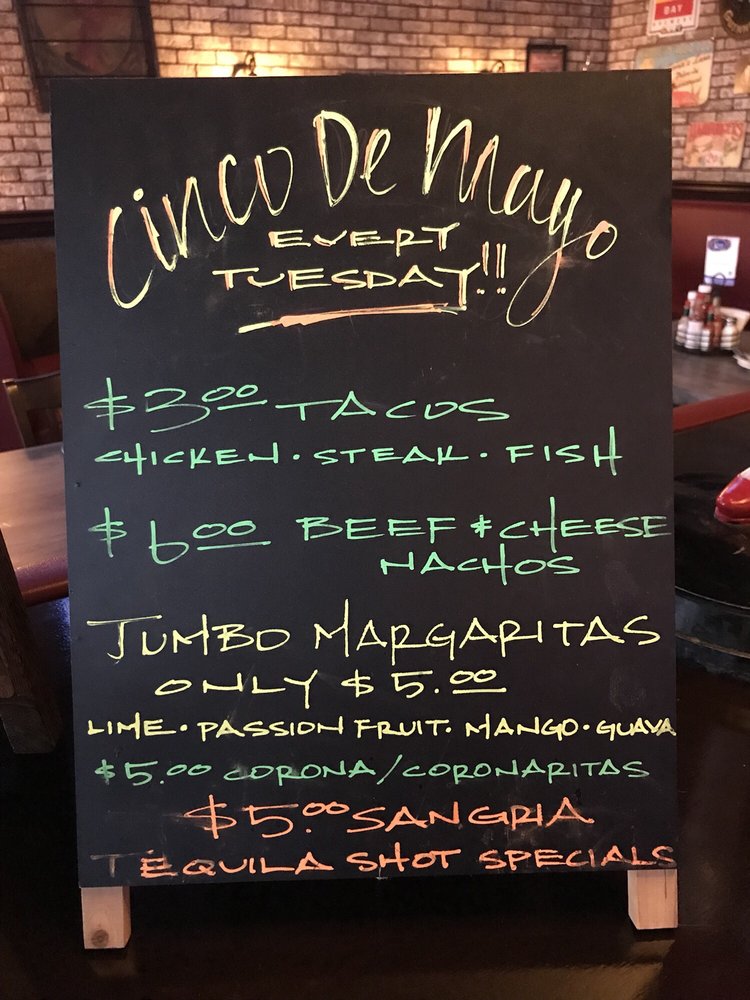 Cinco De Mayo
EVERY
TUESDAY!!!
$3.00 TACOS
CHICKEN · STEAK · FISH
$6.00 BEEF & CHEESE
NACHOS
JUMBO MARGARITAS
ONLY $5.00
LIME · PASSION FRUIT · MANGO · GUAVA
$5.00 CORONA/CORONARITAS
$5.00 SANGRIA
TEQUILA SHOT SPECIALS
BAY